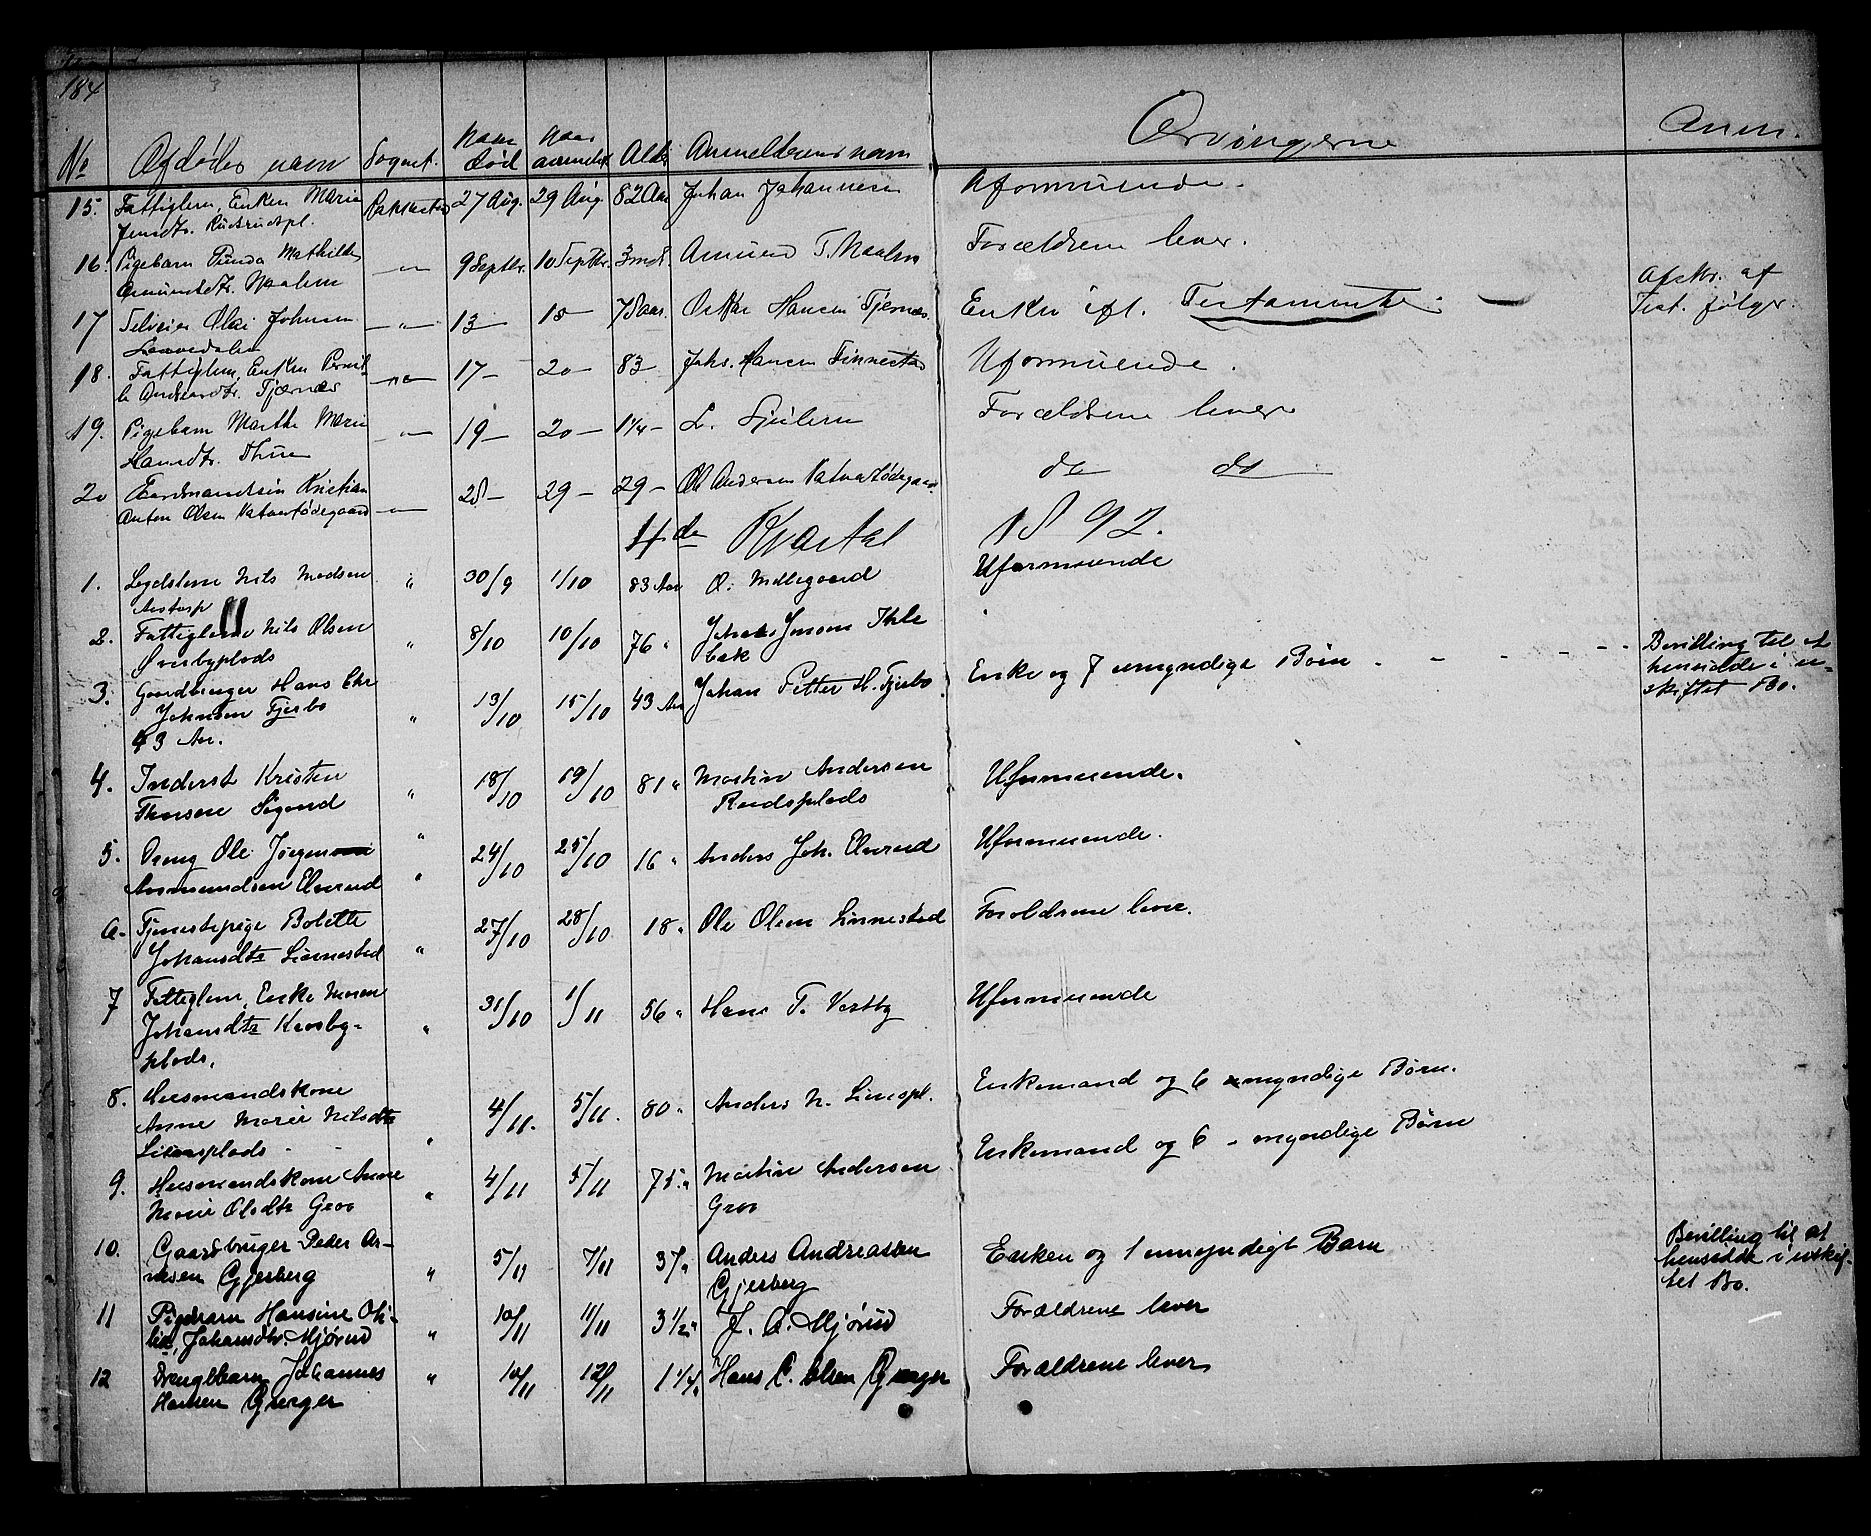 184
No Afdødes navn Sognet. Naar død Naar anmeldt Alder Anmelderens navn Arvingerne Anm.
15. Fattiglem, Enken Marie Rakkestad 27 Aug. 29 Aug. 82 Aar Johan Johannesen Uformuende.
Jensdtr. Rudsrudspl.
16. Pigebarn Gunda Mathilde —"— 9 Septbr. 10 Septbr. 3 mdr. Amund T. Maalen Forældrene lever.
Amundsdtr. Maalen
17 Selveier Olai Johnsen —"— 13 — 15 — 78 aar. Oskar Hansen Tjernæs. Enken ifl. Testamente. — Afskr. af
Test. følger.
18. Fattiglem, Enken Pernil- —"— 17 — 20 — 83 — Johs. Hansen Finnestad Uformuende.
le Andersdtr. Tjærnæs
19. Pigebarn Marthe Marie —"— 19 — 20 — 1 1/4 — L. Forældrene lever
Hansdtr. Thue
20 Kristian 28 — 29 — 29 — Ole Andersen do do
Anton Olsen —"—
4de Kvartal 1892.
1. Lægdslem Nils Madsen " 30/9 1/10 83 Aar O. Mellegaard Uformuende
2. Fattiglem Nils Olsen " 8/10 10/10 76 "
Øverbyplads
3. Gaardbruger Hans Chr " 13/10 15/10 43 Aar Johan Petter H. Fjerbo Enke og 7 umyndige Børn - - - - - - Bevilling til at
Johnsen Fjerbo hensidde i u-
43 Aar. skiftet Bo.
4. Inderst Kristen " 18/10 19/10 81 " Martin Andersen Uformuende.
Thoresen Rudsplads
5. Dreng Ole Jørgen " 24/10 25/10 16 " Anders Joh. Elverud Uformuende.
Amundsen Elverud "
6. Tjenestepige Bolette 27/10 28/10 18 " Ole Olsen Linnestad Foroldrene lever.
Johansdtr Linnestad "
7 Fattiglem, Enke Maren 31/10 1/11 56 " Hans T. Vestby Uformuende
Johansdtr Kaasby- "
plads.
8. Husmandskone 4/11. 5/11. 80 " Anders N. Lienspl. Enkemand og 6 myndige Børn.
Anne Marie Nilsdtr "
Liensplads
9. Husmandskone Anne " 4/11 5/11 75 " Martin Andersen Enkemand og 6 - myndige Børn
Marie Olsdtr Graa Graa
10. Gaardbruger Peder Ar- 5/11 7/11 37 " Anders Andreassen Enken og 1 umyndigt Barn Bevilling til at
nesen Gjerberg " Gjerberg hensidde i uskif-
tet Bo.
11 Pigebarn Hansine Oti- 10/11 11/11 3 1/2 " J. A. Mjørud Forældrene lever
lie, Johansdtr. Mjørud "
12 Drengebarn Johannes " 10/11 12/11 1 1/4 " Hans C. Olsen Forældrene lever
Hansen